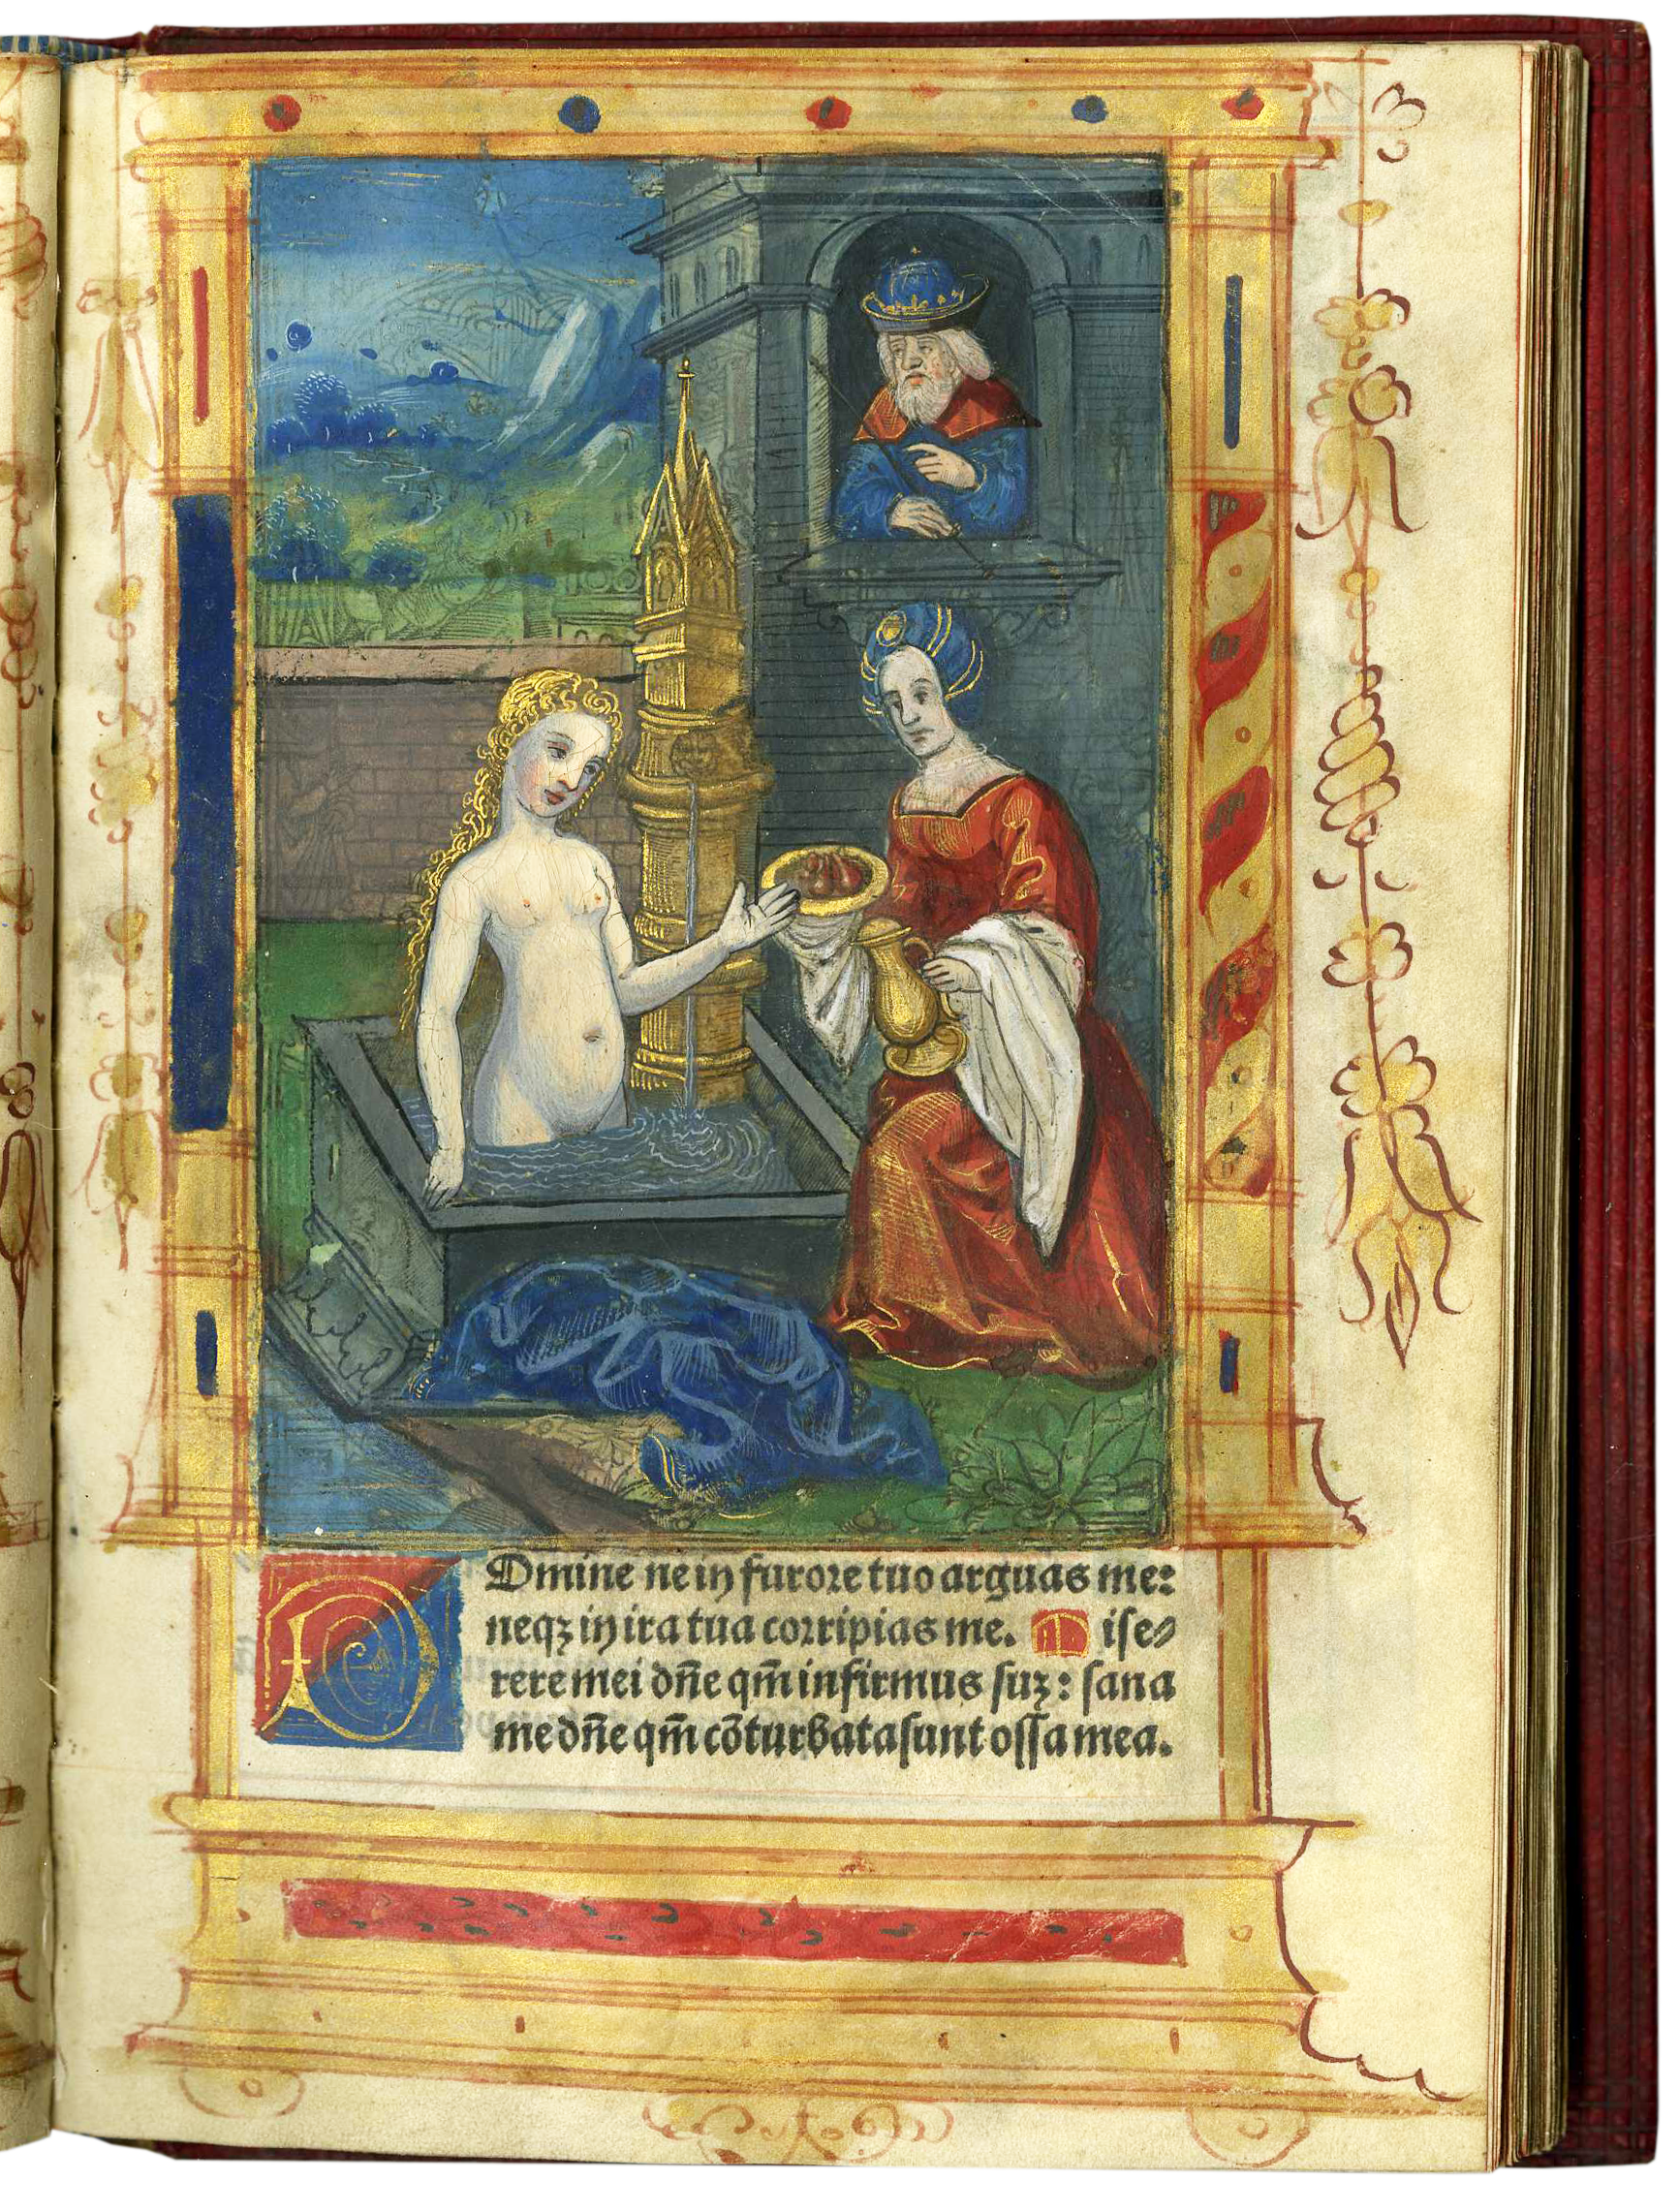 Domine ne in furore tuo arguas me:
neqꝫ in ira tua corripias me. Mise⸗
rere mei dñe qm̄ infirmus suꝫ: sana
me dñe qm̄ cōturbata sunt ossa mea.